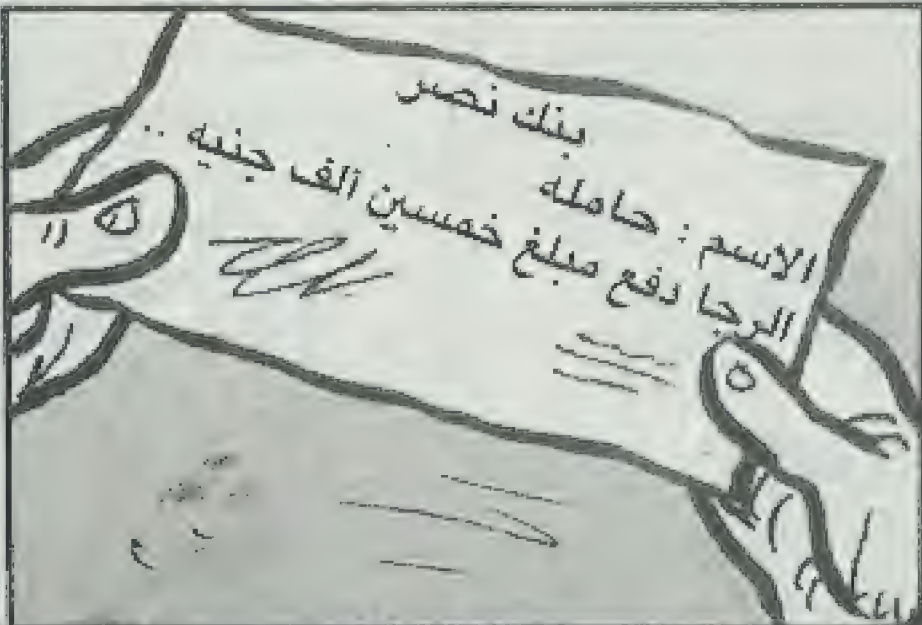 بنك نصر
الاسم : حامله
الرجا دفع مبلغ خمسين ألف جنيه ..